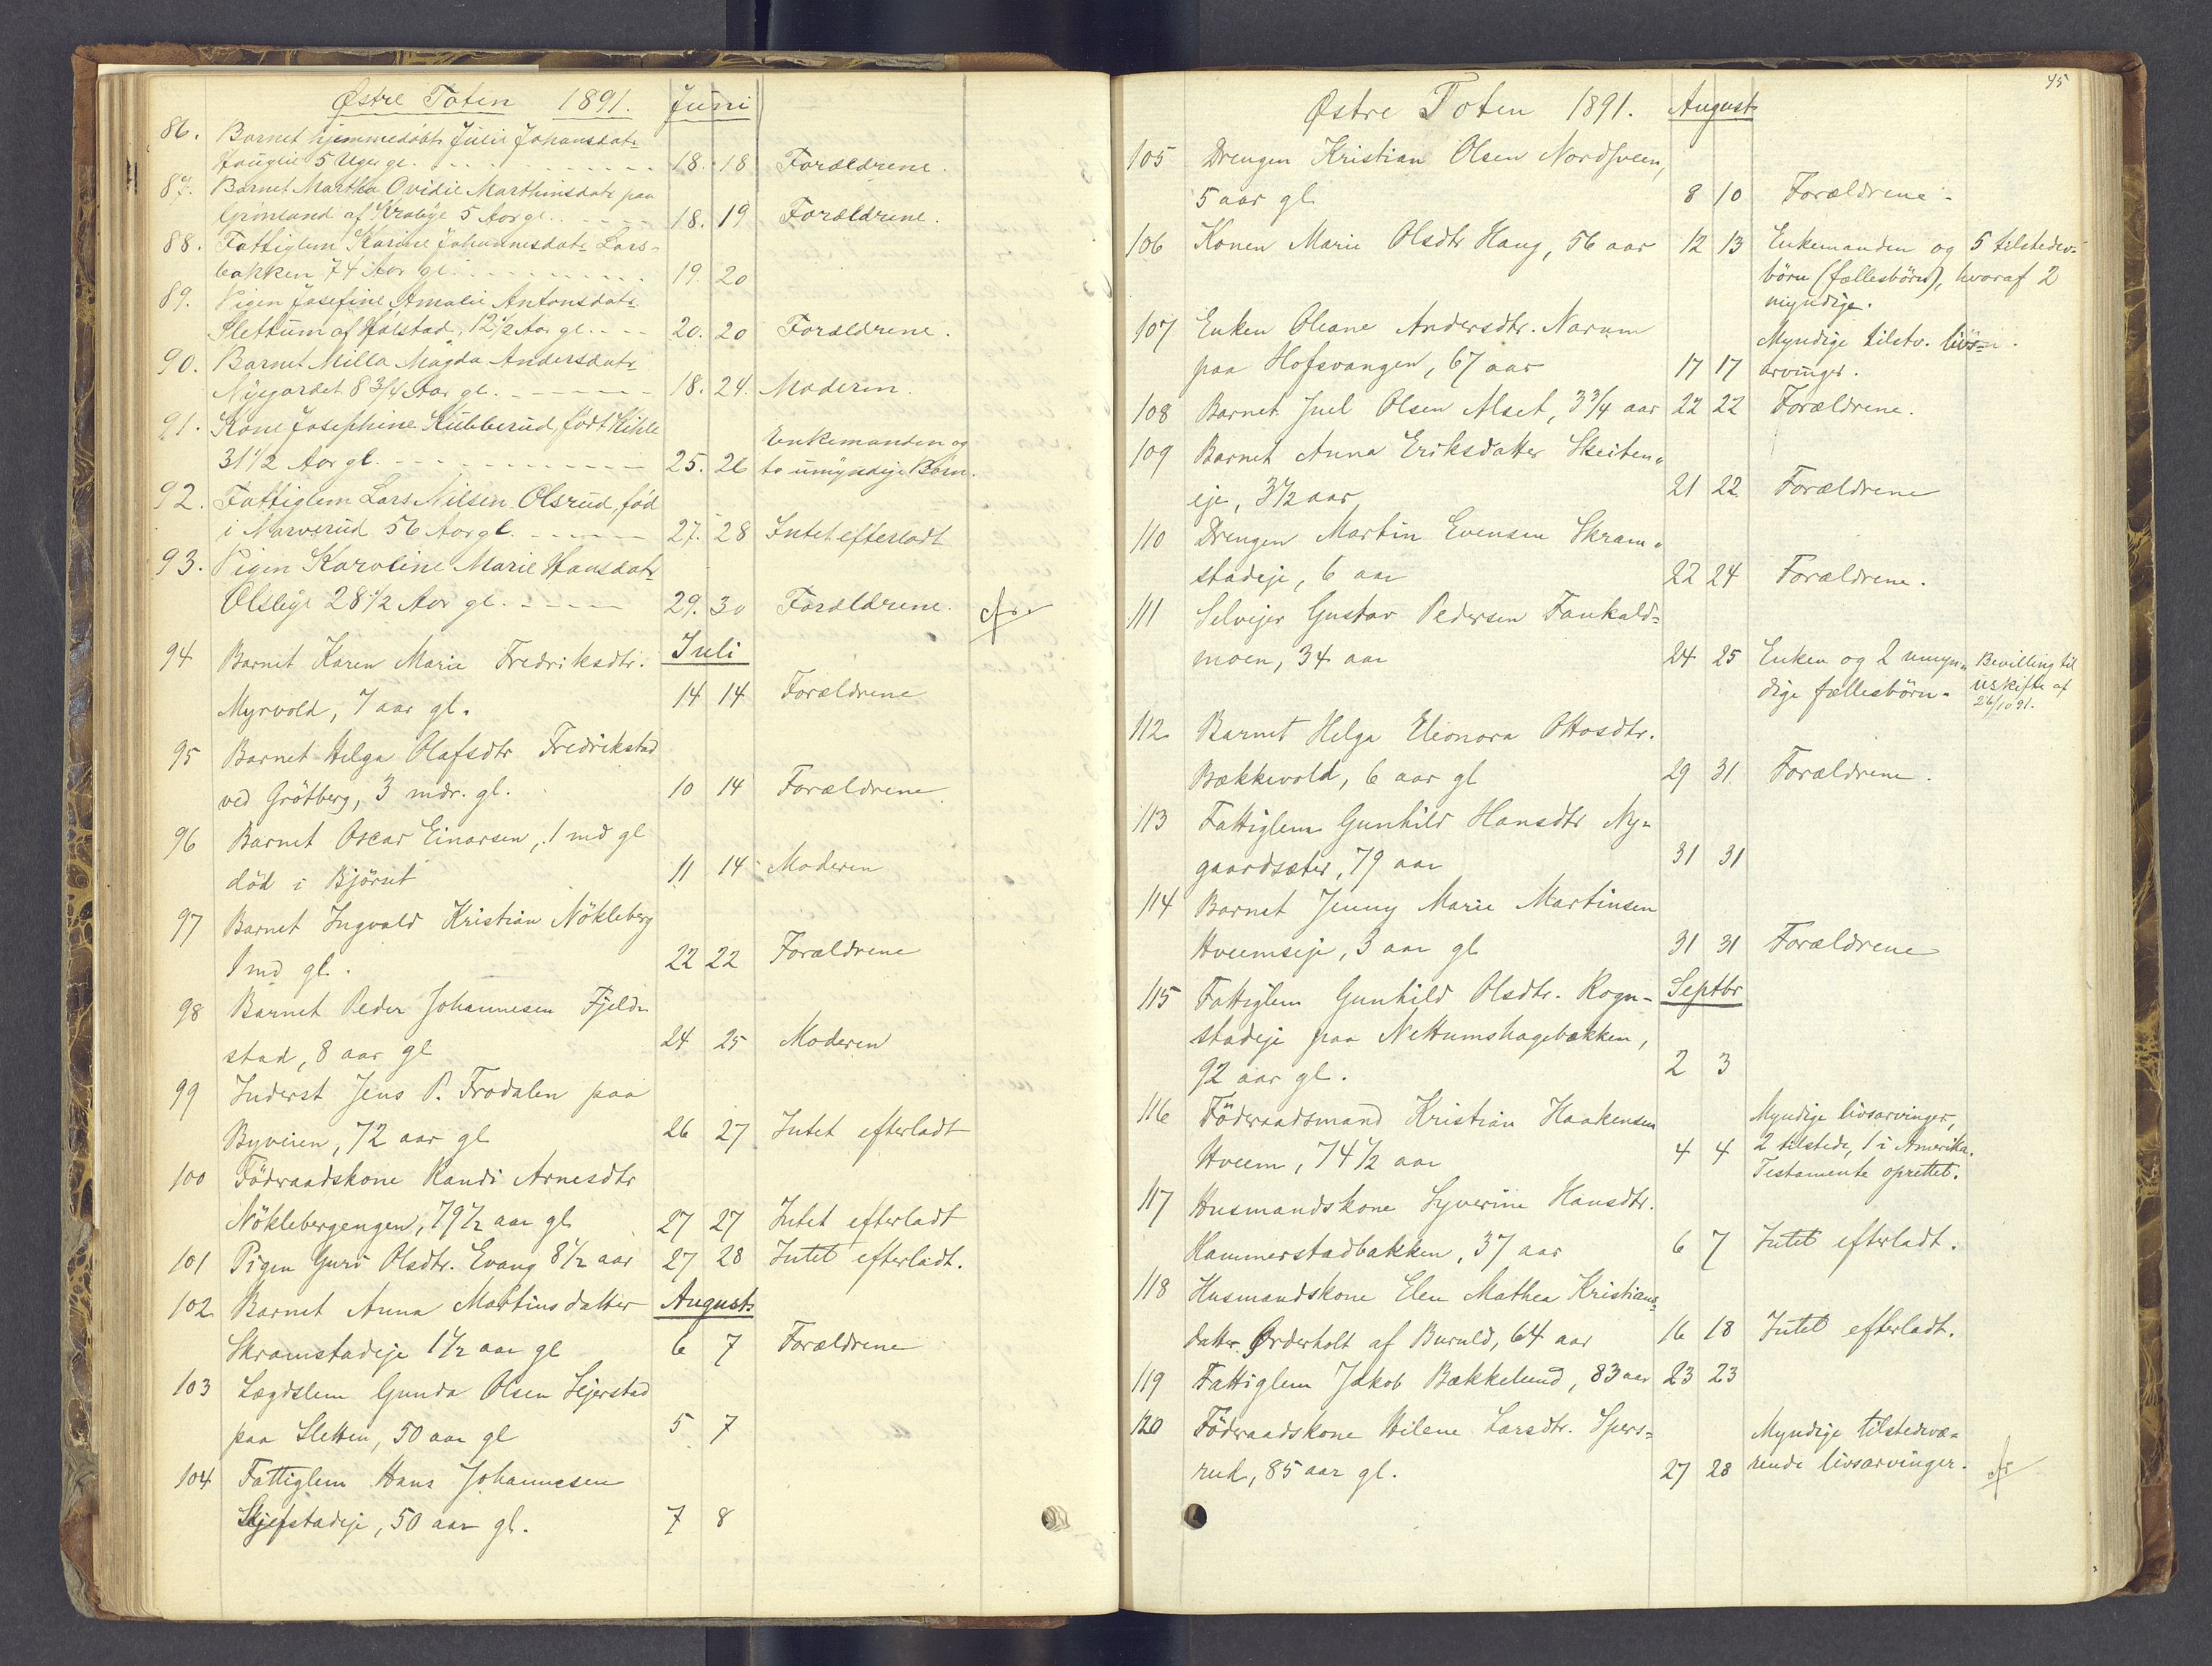 Østre Toten 1891. Juni
86. Barnet hjemmedøbt Julie Johansdatr
Hauglie 5 Uger gl. 18. 18 Forældrene.
87. Barnet Martha Ovidie Marthinsdatr paa
Grønland af Krabye 5 Aar gl. 18. 19 Forældrene.
88. Fattiglem Karine Johannesdatr Lars-
bakken 74 Aar gl. 19. 20
89. Pigen Josefine Amalie Antonsdatr
Slettum af Hølstad, 12 1/2 Aar gl. 20. 20 Forældrene.
90. Barnet Milla Magda Andersdatr
Nygardet 8 3/4 Aar gl. 18. 24. Moderen.
91. Kone Josephine Kubberud, født Kihle Enkemanden og
31 1/2 Aar gl. 25. 26 to umyndige Børn.
92. Fattiglem Lars Nilsen Olsrud, fød
i Narverud 56 Aar gl. 27. 28 Intet efterladt
93. Pigen Karoline Marie Hansdatr
Olsbye 28 1/2 Aar gl. 29. 30 Forældrene.
Juli
94 Barnet Karen Marie Fredriksdtr.
Myrvold, 7 aar gl. 14 14 Forældrene
95 Barnet Helga Olafsdtr Fredrikstad
ved Grötberg, 3 mdr. gl. 10 14 Forældrene
96 Barnet Oscar Einarsen, 1 md gl
död i Björset 11 14 Moderen
97 Barnet Ingvald Kristian Nökleberg
1 md gl. 22 22 Forældrene
98 Barnet Peder Johannesen Fjeld-
stad, 8 aar gl 24 25 Moderen
99 Inderst Jens P. Frodalen paa
Byveien, 72 aar gl 26 27 Intet efterladt
100 Föderaadskone Randi Arnesdtr
Nöklebergengen, 79 1/2 aar gl 27 27 Intet efterladt
101 Pigen Guri Olsdtr. Evang 8 1/2 aar 27 28 Intet efterladt.
102 Barnet Anna Martinsdatter August
Skramstadeje 1 1/2 aar gl 6 7 Forældrene
103 Lægdslem Gunda Olsen Sejerstad
paa Sletten, 50 aar gl 5 7
104 Fattiglem Hans Johannesen
Skjefstadeje, 50 aar gl. 7 8
45
Østre Toten 1891. August
105 Drengen Kristian Olsen Nordsveen,
5 aar gl 8 10 Forældrene.
106 Konen Marie Olsdtr Haug, 56 aar 12 13 Enkemanden og 5 tilstedev.
börn (fællesbörn), hvoraf 2
myndige.
107 Enken Oleane Andersdtr. Narum Myndige tilstv. livs-
paa Hofsvangen, 67 aar 17 17 arvinger.
108 Barnet Juel Olsen Alset, 3 3/4 aar 22 22 Forældrene.
109 Barnet Anna Eriksdatter Skeiten-
eje, 3 1/2 aar 21 22 Forældrene
110 Drengen Martin Evensen Skram-
stadeje, 6 aar 22 24 Forældrene.
111 Selvejer Gustav Pedersen Faukald-
moen, 34 aar 24 25 Enken og 2 umyn- Bevilling til
dige fællesbörn. uskifte af
26/10 91.
112 Barnet Helga Eleonora Ottosdtr.
Bækkevold, 6 aar gl 29 31. Forældrene.
113 Fattiglem Gunhild Hansdtr Ny-
gaardsæter, 79 aar 31 31
114 Barnet Jenny Marie Martinsen
Hveemseje, 3 aar gl 31 31 Forældrene
115 Fattiglem Gunhild Olsdtr. Rogn- Septbr
stadeje paa Nettumshagebakken,
92 aar gl. 2 3
116 Föderaadsmand Kristian Haakensen Myndige livsarvinger,
Hveem, 74 1/2 aar 4 4 2 tilstede, 1 i Amerika.
Testamente oprettet.
117 Husmandskone Syverine Hansdtr.
Hammerstadbakken, 37 aar 6 7 Intet efterladt.
118 Husmandskone Elen Mathea Kristians-
datter Ørderholt af Buruld, 64 aar 16 18 Intet efterladt.
119 Fattiglem Jakob Bækkelund, 83 aar 23 23
120 Föderaadskone Helene Larsdtr. Spers- Myndige tilstedevæ-
rud, 85 aar gl. 27 28 rende livsarvinger.